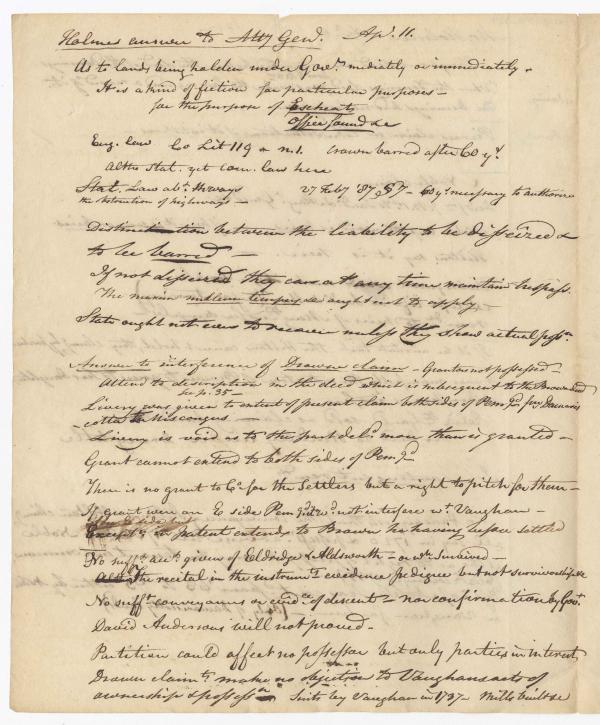 Holmes answer to Atty Genl. Ap. 11.
As to lands being holden under Govt. mediately or immediately.
It is a kind of fiction for particular purposes –
for the purpose of Escheats
Office found &c
Eng. law Co Lit 119 & n.1. crown barred after 60 ys
stat. yet com. law here
Stat. Law abt. Highways 27 Feby '87, §7 – 60 ys. necessary to authorise
the retention of highways –
Distinction between the liability to be disseized &
to be barred –
If not disseized they can at any time maintain trespass.
The maxim nullum tempus &c ought not to apply –
State ought not even to recover unless they show actual possn.
Answer to interference of Drowne claim – Grantors not possessed –
Attend to description in the deed which is subsequent to the Brown deed
See p. 35 –
Livery was given to extent of present claim both sides of Pemqd. from Damaris
cotta to Miscongus –
Livery is void as to the part deld. more than is granted –
Grant cannot extend to both sides of Pemqd
There is no grant to Co. for the Settlers but a right to pitch for them –
If grant were on E side Pemqd. it wd. not interfere wt. Vaughan –
Except in patent extends to Brown he having before settled
No sufft. acct. given of Eldredge & Aldsworth – or wh. survived –
The recital in the instrumt. evidence pedigree but not survivorship &c
No sufft. conveyances or evidce. of descent – nor confirmation by Govt.
David Andersons will not proved –
Partition could affect no possessor but only parties in interest
Drowne claimts. make no objection to Vaughans acts of
ownership & possessn. Suits by Vaughan in 1737. Mills built &c